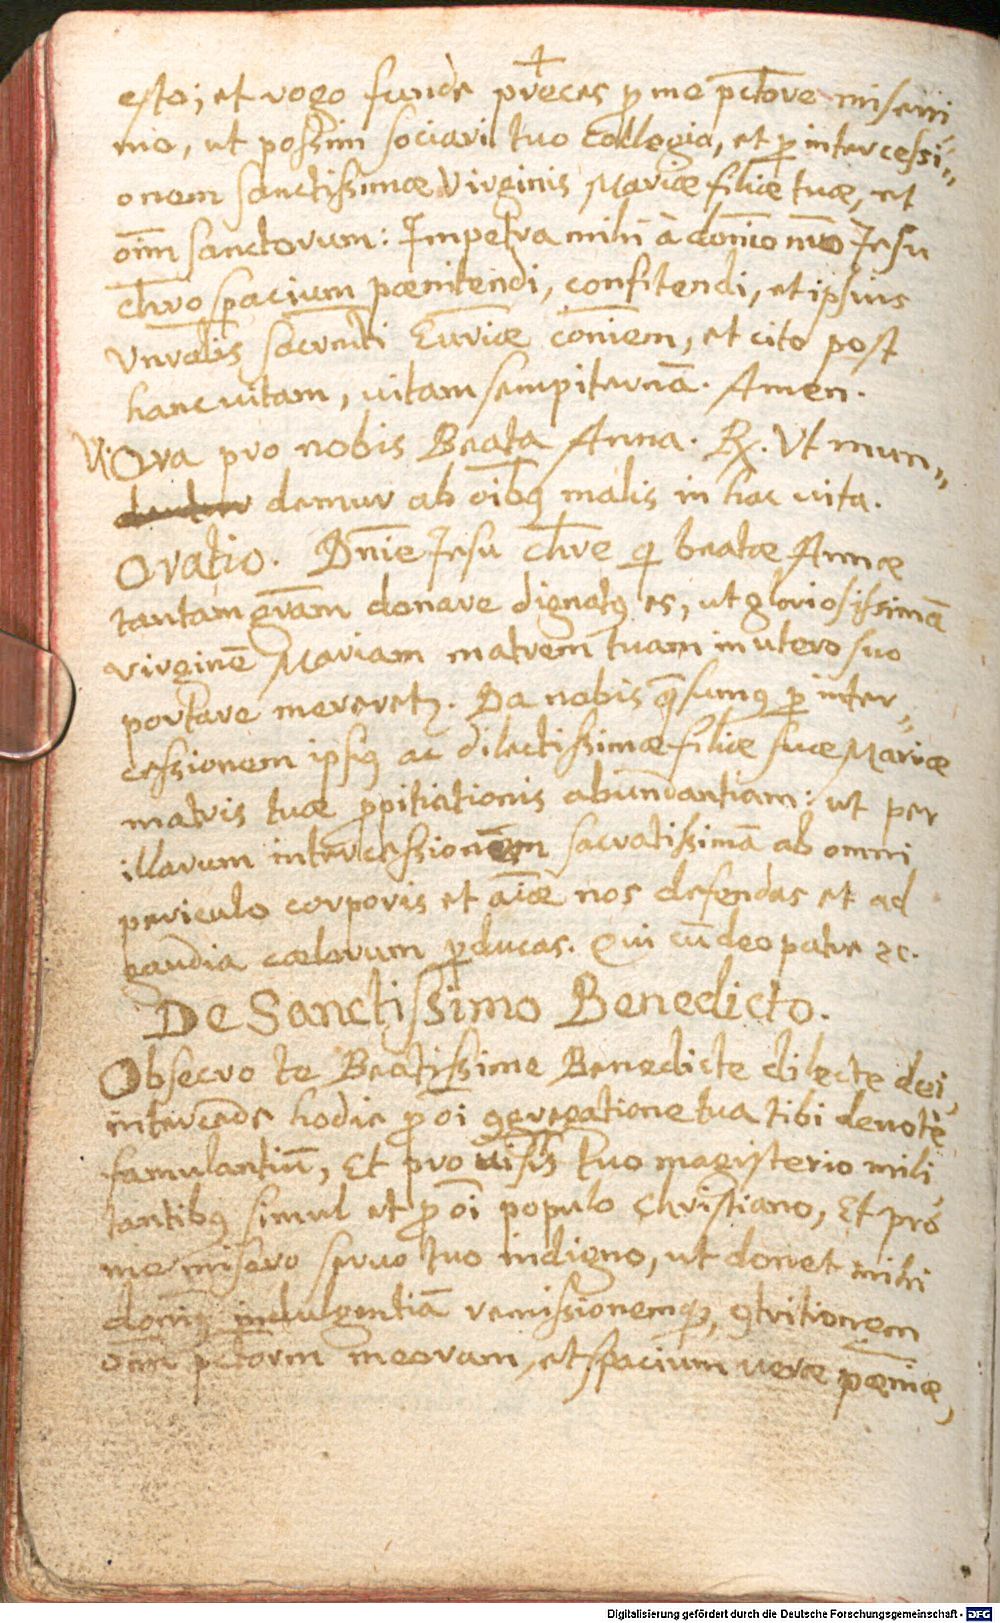 esto; et rogo funde preces ꝑ me pctore miserri
mo, ut possim sociari tuo Collegio, et ꝑ intercessi„
onem sanctissimæ Virginis Mariæ filiæ tuæ, et
om̄ sanctorum: Impetra mihi à domīo nr̄o Jesu
chrō spacium pænitendi, confitendi, et ipsius
Vnralis sacrm̄ti Euriæ cōniem, et cito post
hanc vitam, vitam sempiternā. Amen.
V. Ora pro nobis Beata Anna. R. Vt mun„
demur ab oībꝰ malis in hac vita.
Oratio. Dn̄ie Jesu chrē qi beatæ Annæ
tantam grām donare dignatꝰ es, ut gloriosissimā
virginē Mariam matrem tuam in utero suo
portare mereretꝫ. Da nobis qsumꝰ ꝑ inter„
cessionem ipsiꝰ ac dilectissimæ filiæ suæ Mariæ
matris tuæ ꝓpitiationis abundantiam: ut per
illarum intercessionem sacratissimā ab omni
periculo corporis et aīæ nos defendas et ad
gaudia cœlorum ꝑducas. Qui cū deo patre ꝛc.
De Sanctissimo Benedicto.
Obsecro te Beatissime Benedicte dilecte dei,
intercede hodie ꝓ oī ꝯgregatione tua tibi deuotè
famulantiū, Et pro uīsis tuo magisterio mili„
tantibꝰ simul et ꝓ oī populo Christiano, Et pro
me misero seruo tuo indigno, ut donet mihi
domīꝰ indulgentiā remissionemqꝫ, ꝯtritionem
om̄ pctorm meorum, et spacium veræ pœniæ,
Digitalisierung gefördert durch die Deutsche Forschungsgemeinschaft - DFG